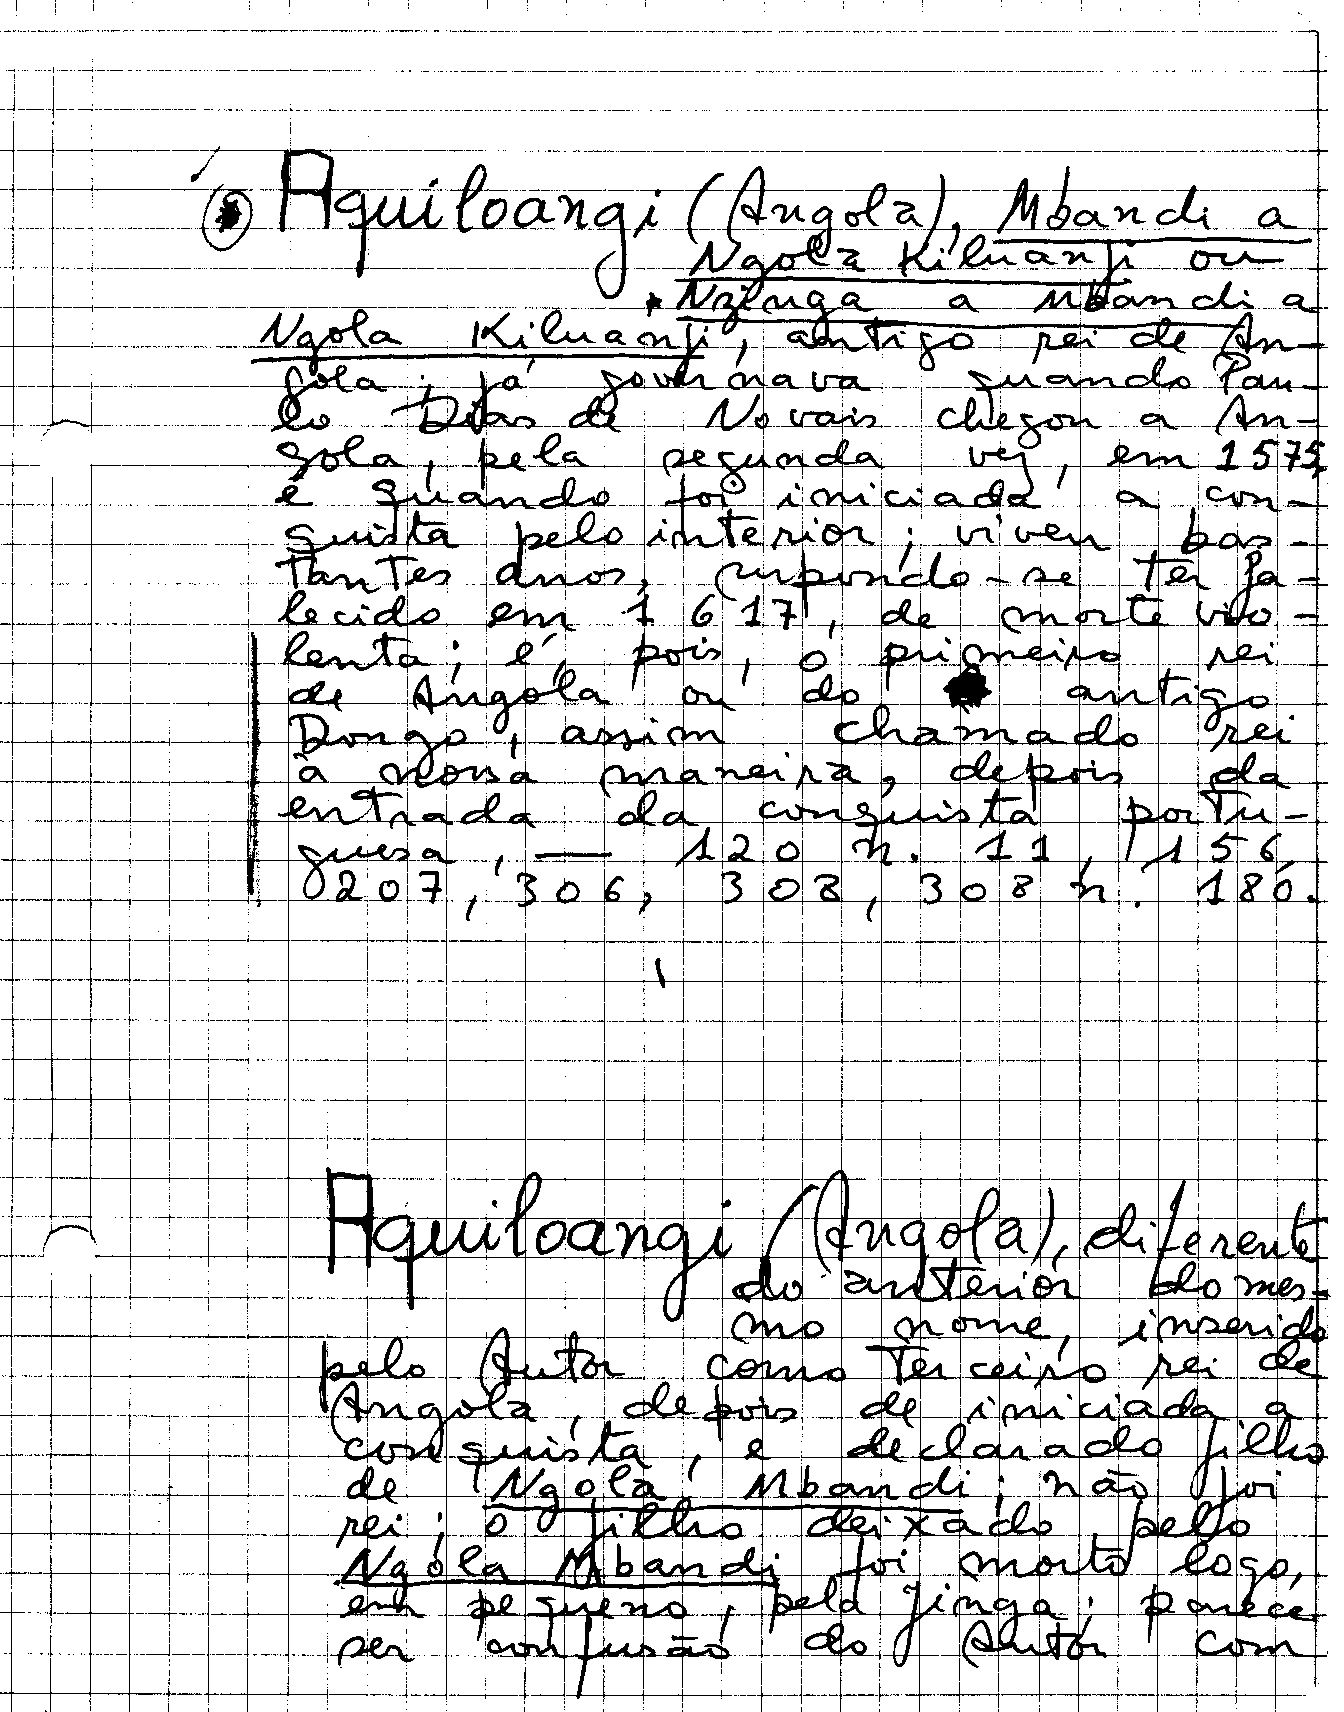 Aquiloangi (Angola), Mbandi a
Ngola Kiluanji ou
Nzinga a Mbandi a
Ngola Kiluanji, antigo rei de An-
gola; já governava quando Pau-
lo Dias de Novais chegou a An-
gola, pela segunda vez, em 1575,
e quando foi iniciada a con-
quista pelo interior; viveu bas-
tantes anos, supondo-se ter fa-
lecido em 1617, de morte vio-
lenta; é, pois, o primeiro rei
de Angola ou do antigo
Dongo, assim chamado rei
à nossa maneira, depois da
entrada da conquista portu-
guesa, — 120 n. 11, 156,
207, 306, 308, 308 n. 180.
Aquiloangi (Angola), diferente
do anterior do mes-
mo nome, inserido
pelo Autor como terceiro rei de
Angola, depois de iniciada a
conquista, e declarado filho
de Ngola Mbandi; não foi
rei; o filho deixado pelo
Ngola Mbandi foi morto logo,
em pequeno, pela Jinga; parece
ser confusão do Autor com